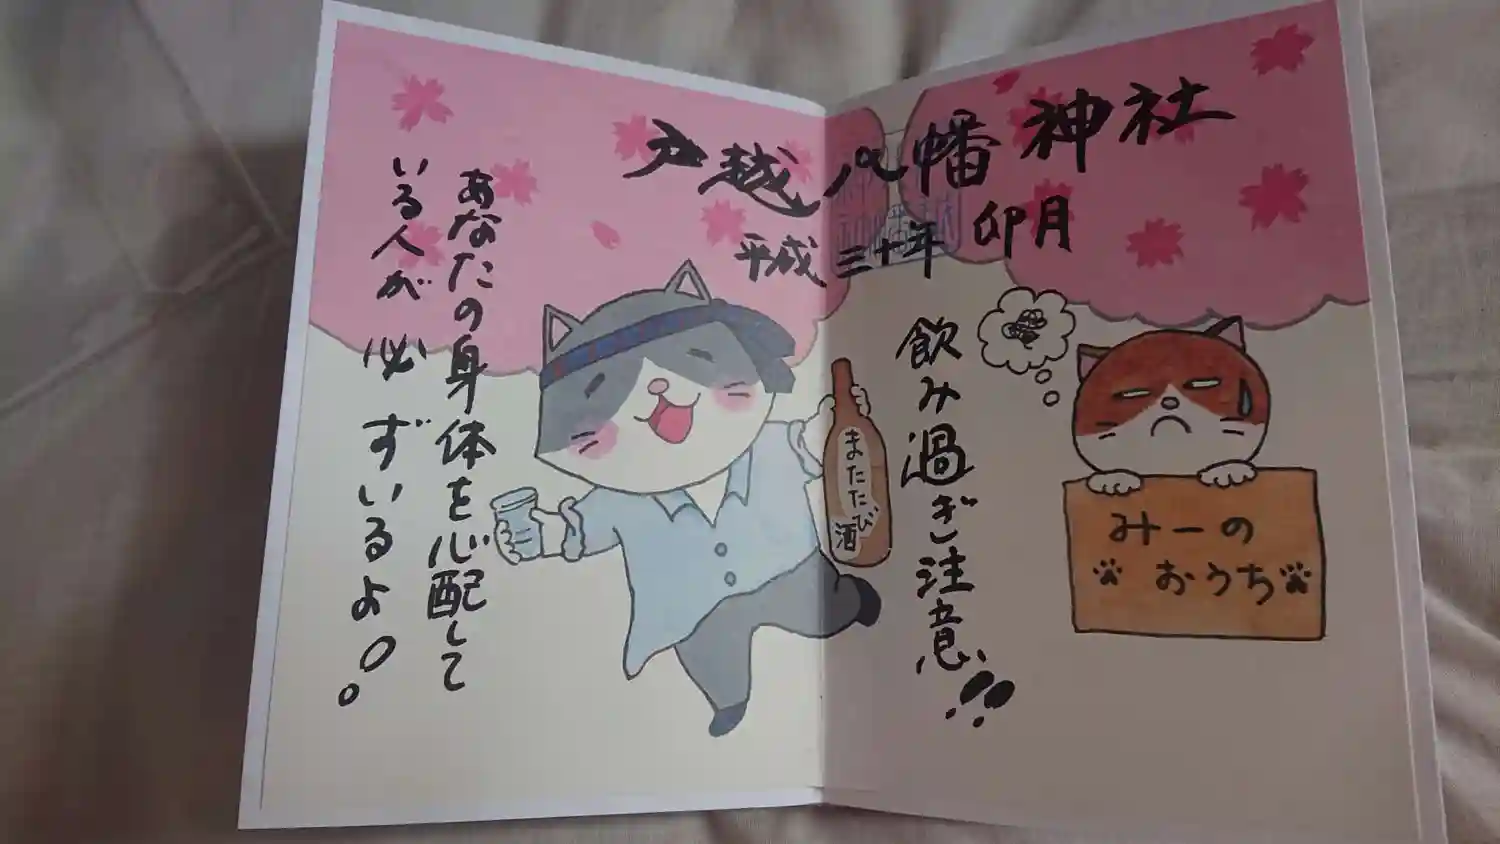 戸越八幡神社
平成三十年 卯月
飲み過ぎ注意!!
あなたの身体を心配して
いる人が必ずいるよ。
またたび
酒
みーの
おうち